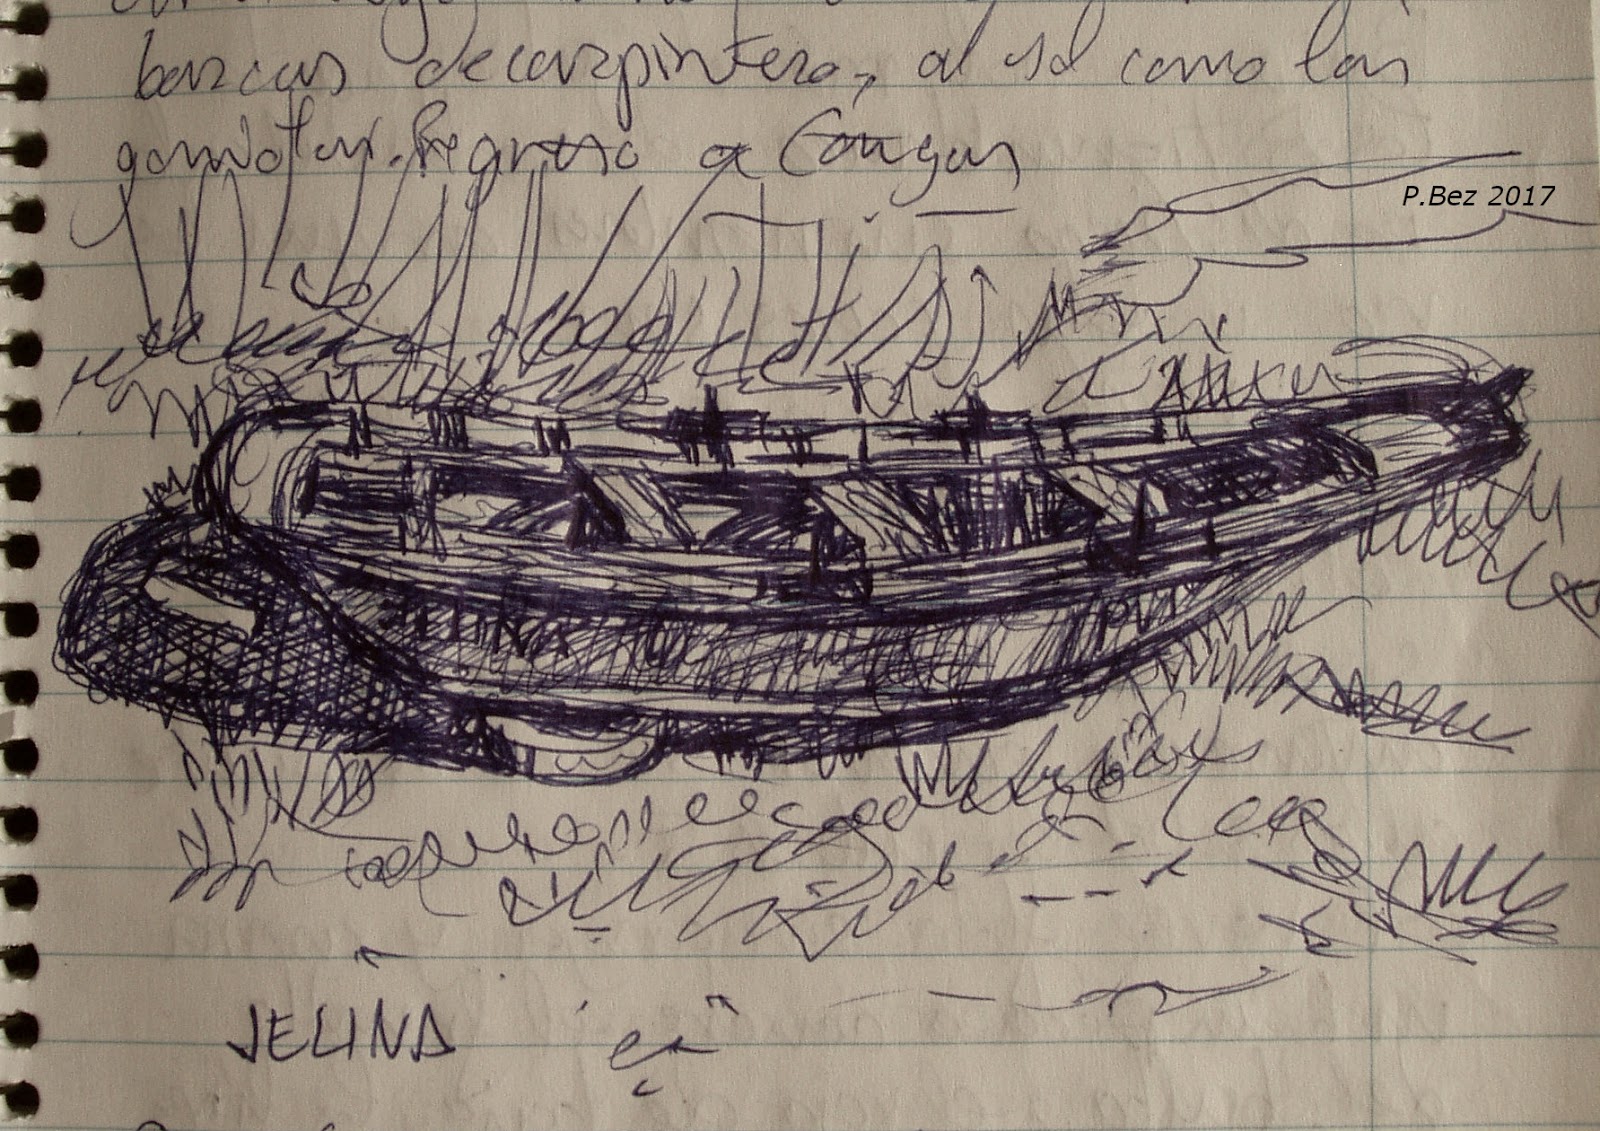 barcas de carpintero, al sol como las
gaviotas. Regreso a Cangas
P.Bez 2017
JELINA
JELINA